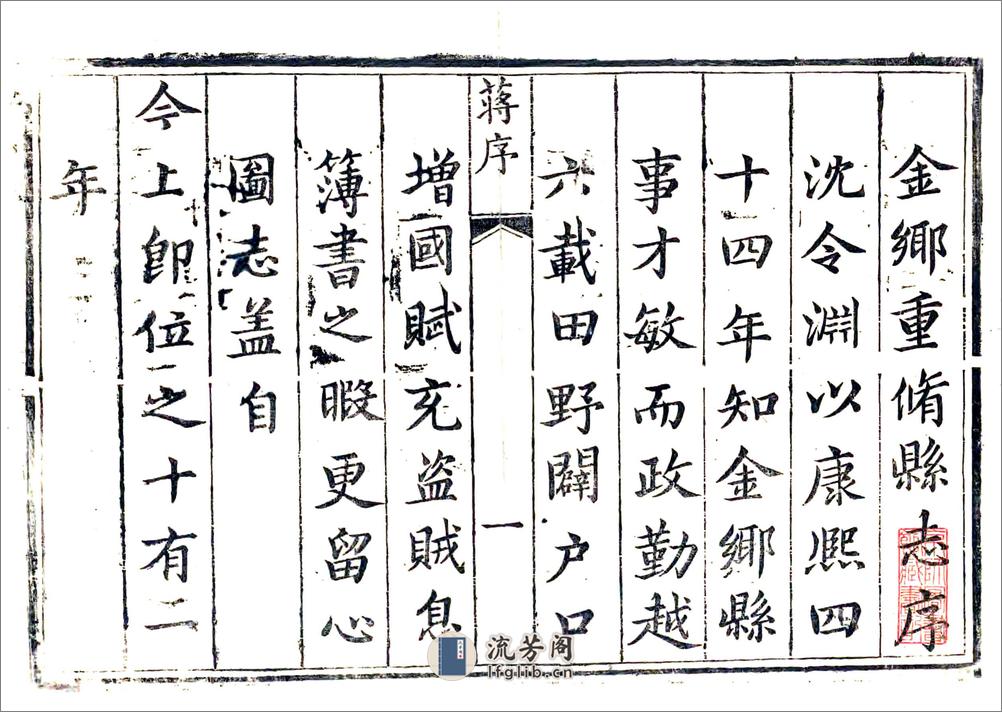 金鄉重脩縣志序
沈令淵以康熙四
十四年知金鄉縣
事才敏而政勤越
六載田野闢户口
蔣序
一
增國賦充盗賊息
簿書之暇更留心
圖志盖自
今上卽位之十有二
年
流芳阁
lfglib.cn